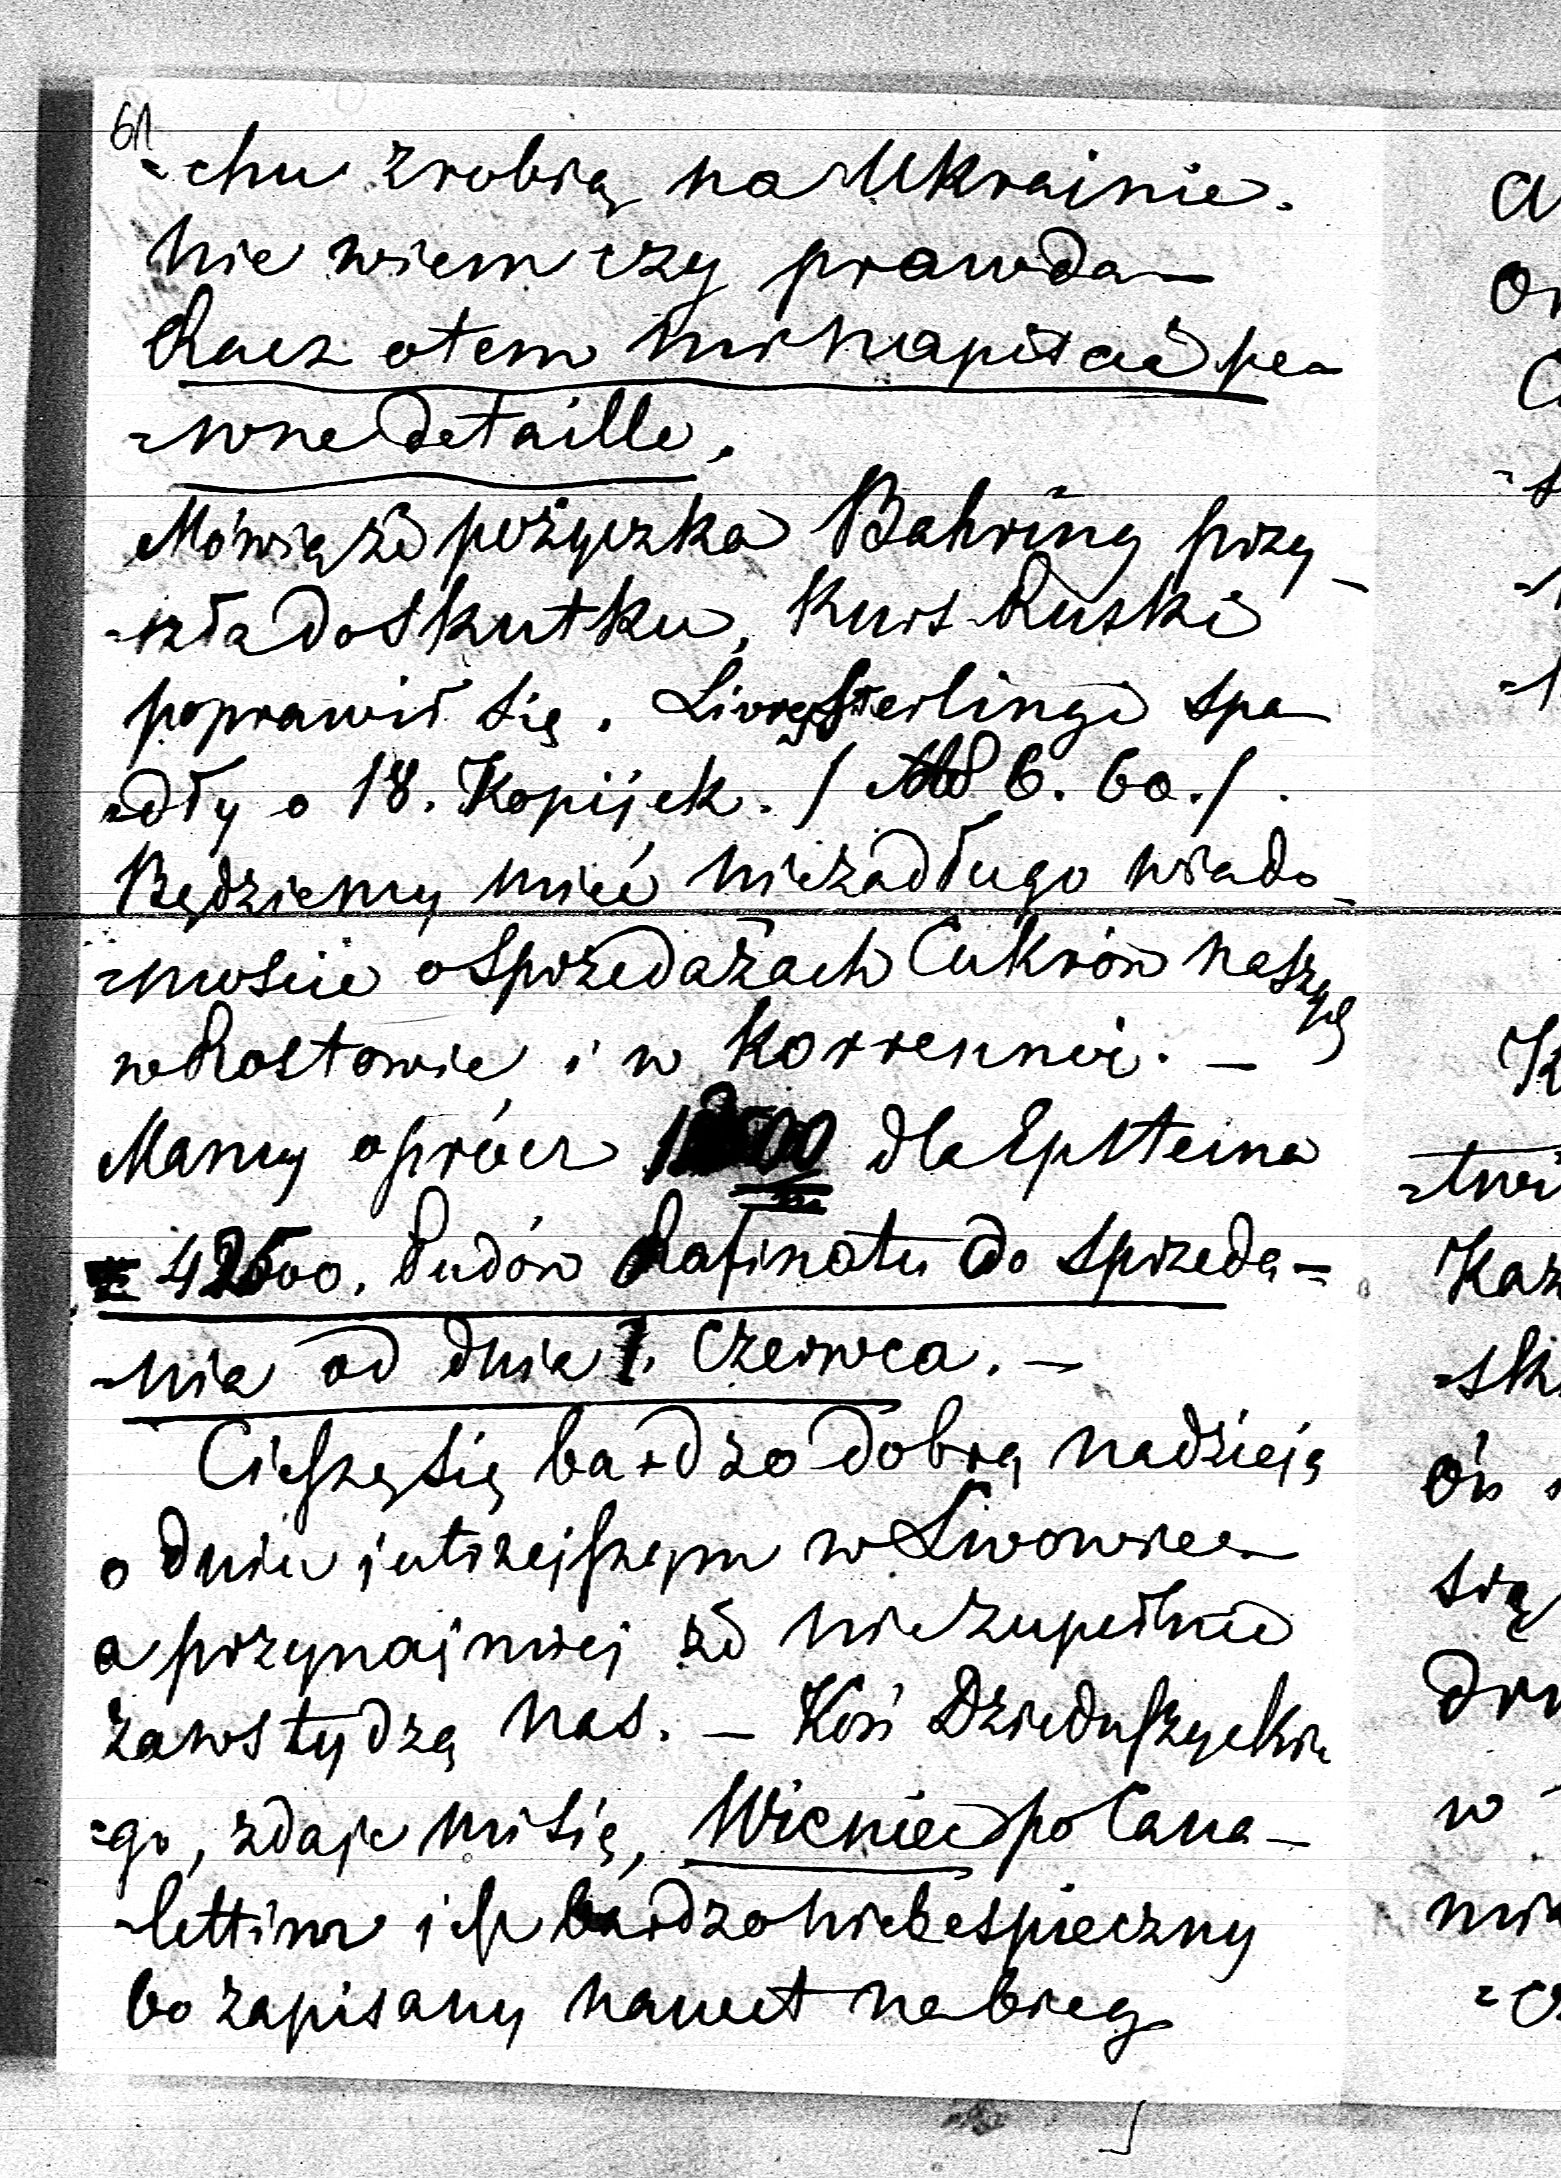 61
=chu zrobią na Ukrainie.
Nie wiem czy prawda —
Racz o tem mi napisać pe=
=wne detaille.
Mówią że pożyczka Bahring przy=
=szła do skutku, Kurs Ruski
poprawił się. Livry Sterlingi spa=
=dły o 18. Kopijek. / 6. 60. /.
Będziemy mieć niezadługo wiado=
=moście o sprzedażach Cukrów naszych
w Rostowie i w Korrennoi. —
Mamy oprócz dla Epsteina
42500. Pudów Rafinatu do sprzeda=
=nia od dnia 1. Czerwca. —
Cieszę się bardzo dobrą nadzieją
o dniu jutrzejszym w Lwowie —
a przynajmniej że nie zupełnie
zawstydzą nas. — Koń Dzieduszyckie
=go, zdaje mi się, Wieniec po Cana=
=lettim jest bardzo niebespieczny
bo zapisany nawet na bieg